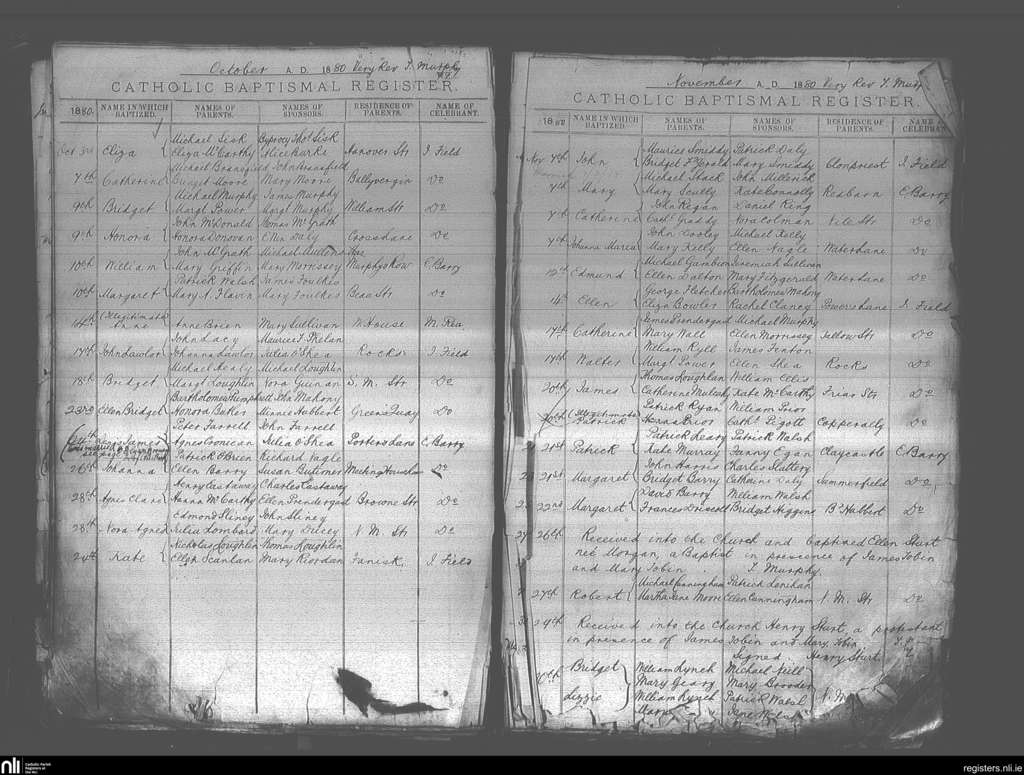 October A. D. 1880 Very Rev T. Murphy
CATHOLIC BAPTISMAL REGISTER.
1880. NAME IN WHICH BAPTIZED. NAMES OF PARENTS. NAMES OF SPONSORS. RESIDENCE OF PARENTS. NAME OF CELEBRANT.
Michael Sisk Thos Sisk
Oct 3rd Eliza Eliza McCarthy Hanover Str I. Field
Michael Bransfield John Bransfield
7th Catherine Bridget Moore Mary Moore Ballyvergin Do
Michael Murphy James Murphy
9th Bridget Margt Power Margt Murphy William Str Do
John McDonald Thomas McGrath
9th Honora Honora Donovan Ellen Daly Crosslane Do
John McGrath Michael
10th William Mary Griffin Mary Morrissey Murphys Row E Barry
Patrick Walsh James Foulkes
10th Margaret Mary A. Flavin Mary Foulkes Beau Str Do
(Illegitimate)
14th Anne Anne Brien Mary Sullivan W House M. Rea
John Lacy Maurice F Phelan
17th John Lawlor Johanna Lawlor Julia O'Shea Rocks I. Field
Michael Healy Michael Loughlin
18th Bridget Margt Loughlin Nora Guinan S. M. Str Do
Bartholomew John Mahony
23rd Ellen Bridget Honora Baker Minnie Hubbert Greens Quay Do
Peter Farrell John Farrell
James Agnes Cronican Julia O'Shea Porters Lane E Barry
Patrick O'Brien Richard Nagle
26th Johanna Ellen Barry Susan Butimer Do
Henry Castaway Charles Castaway
28th Agnes Clare Hanna McCarthy Ellen Prendergast Browne Str Do
Edmond Sliney John Sliney
28th Nora Agnes Julia Lombard Mary Dricey N. M. Str Do
Nicholas Loughlin Thomas Loughlin
Kate Ellen Scanlan Mary Riordan Fanisk I. Field
November A. D. 1880 Very Rev T. Murphy
CATHOLIC BAPTISMAL REGISTER.
1880 NAME IN WHICH BAPTIZED. NAMES OF PARENTS. NAMES OF SPONSORS. RESIDENCE OF PARENTS. NAME OF CELEBRANT
Maurice Smiddy Patrick Daly
Nov 4th John Bridget Fitzgerald Mary Smiddy Clonpriest I. Field
Michael Shack John Millerick
4th Mary Mary Scully Kate Connolly Redbarn E Barry
John Regan Daniel King
Catherine Cath Graddy Nora Colman Nile Str Do
John Cooley Michael Kelly
7th Johanna Maria Mary Kelly Ellen Nagle Waterlane Do
Michael Gambion Jeremiah Sullivan
12th Edmund Ellen Dalton Mary Fitzgerald Waterlane Do
George Fletcher Bartholomew Mahony
14th Ellen Eliza Bowler Rachel Clancy Towers Lane I. Field
James Prendergast Michael Murphy
17th Catherine Mary Wall Ellen Morrissey Tallow Str Do
William Ryll James Fenton
Walter Margt Power Ellen Shea Rocks Do
Thomas Loughlan William Ellis
20th James Catherine Mulcahy Kate McCarthy Friar Str Do
(Illegitimate) Patrick Ryan William Prior
20th Patrick Hanna Prior Cath Pigott Copperally Do
Patrick Leary Patrick Walsh
21st Patrick Kate Murray Fanny Egan Claycastle E Barry
John Harris Charles Slattery
21st Margaret Bridget Berry Catherine Daly Summerfield Do
David Barry William Walsh
22nd Margaret Frances Driscoll Bridget Higgins Do
26th Received into the Church and Baptised Ellen Sturt
neé Morgan, a Baptist in presence of James Tobin
and Mary Tobin. T. Murphy
Michael Cunningham Patrick Lenihan
27th Robert Martha Jane Moore Ellen Cunningham N. M. Str Do
29th Received into the Church Henry Sturt, a protestant,
in presence of James Tobin and Mary Tobin
Signed Henry Sturt.
Bridget William Lynch Michael Neill
30th Mary Geary Mary Brooder
Lizzie William Lynch Patrick Walsh N. M.
Mary
nli Catholic Parish Registers at the NLI
registers.nli.ie